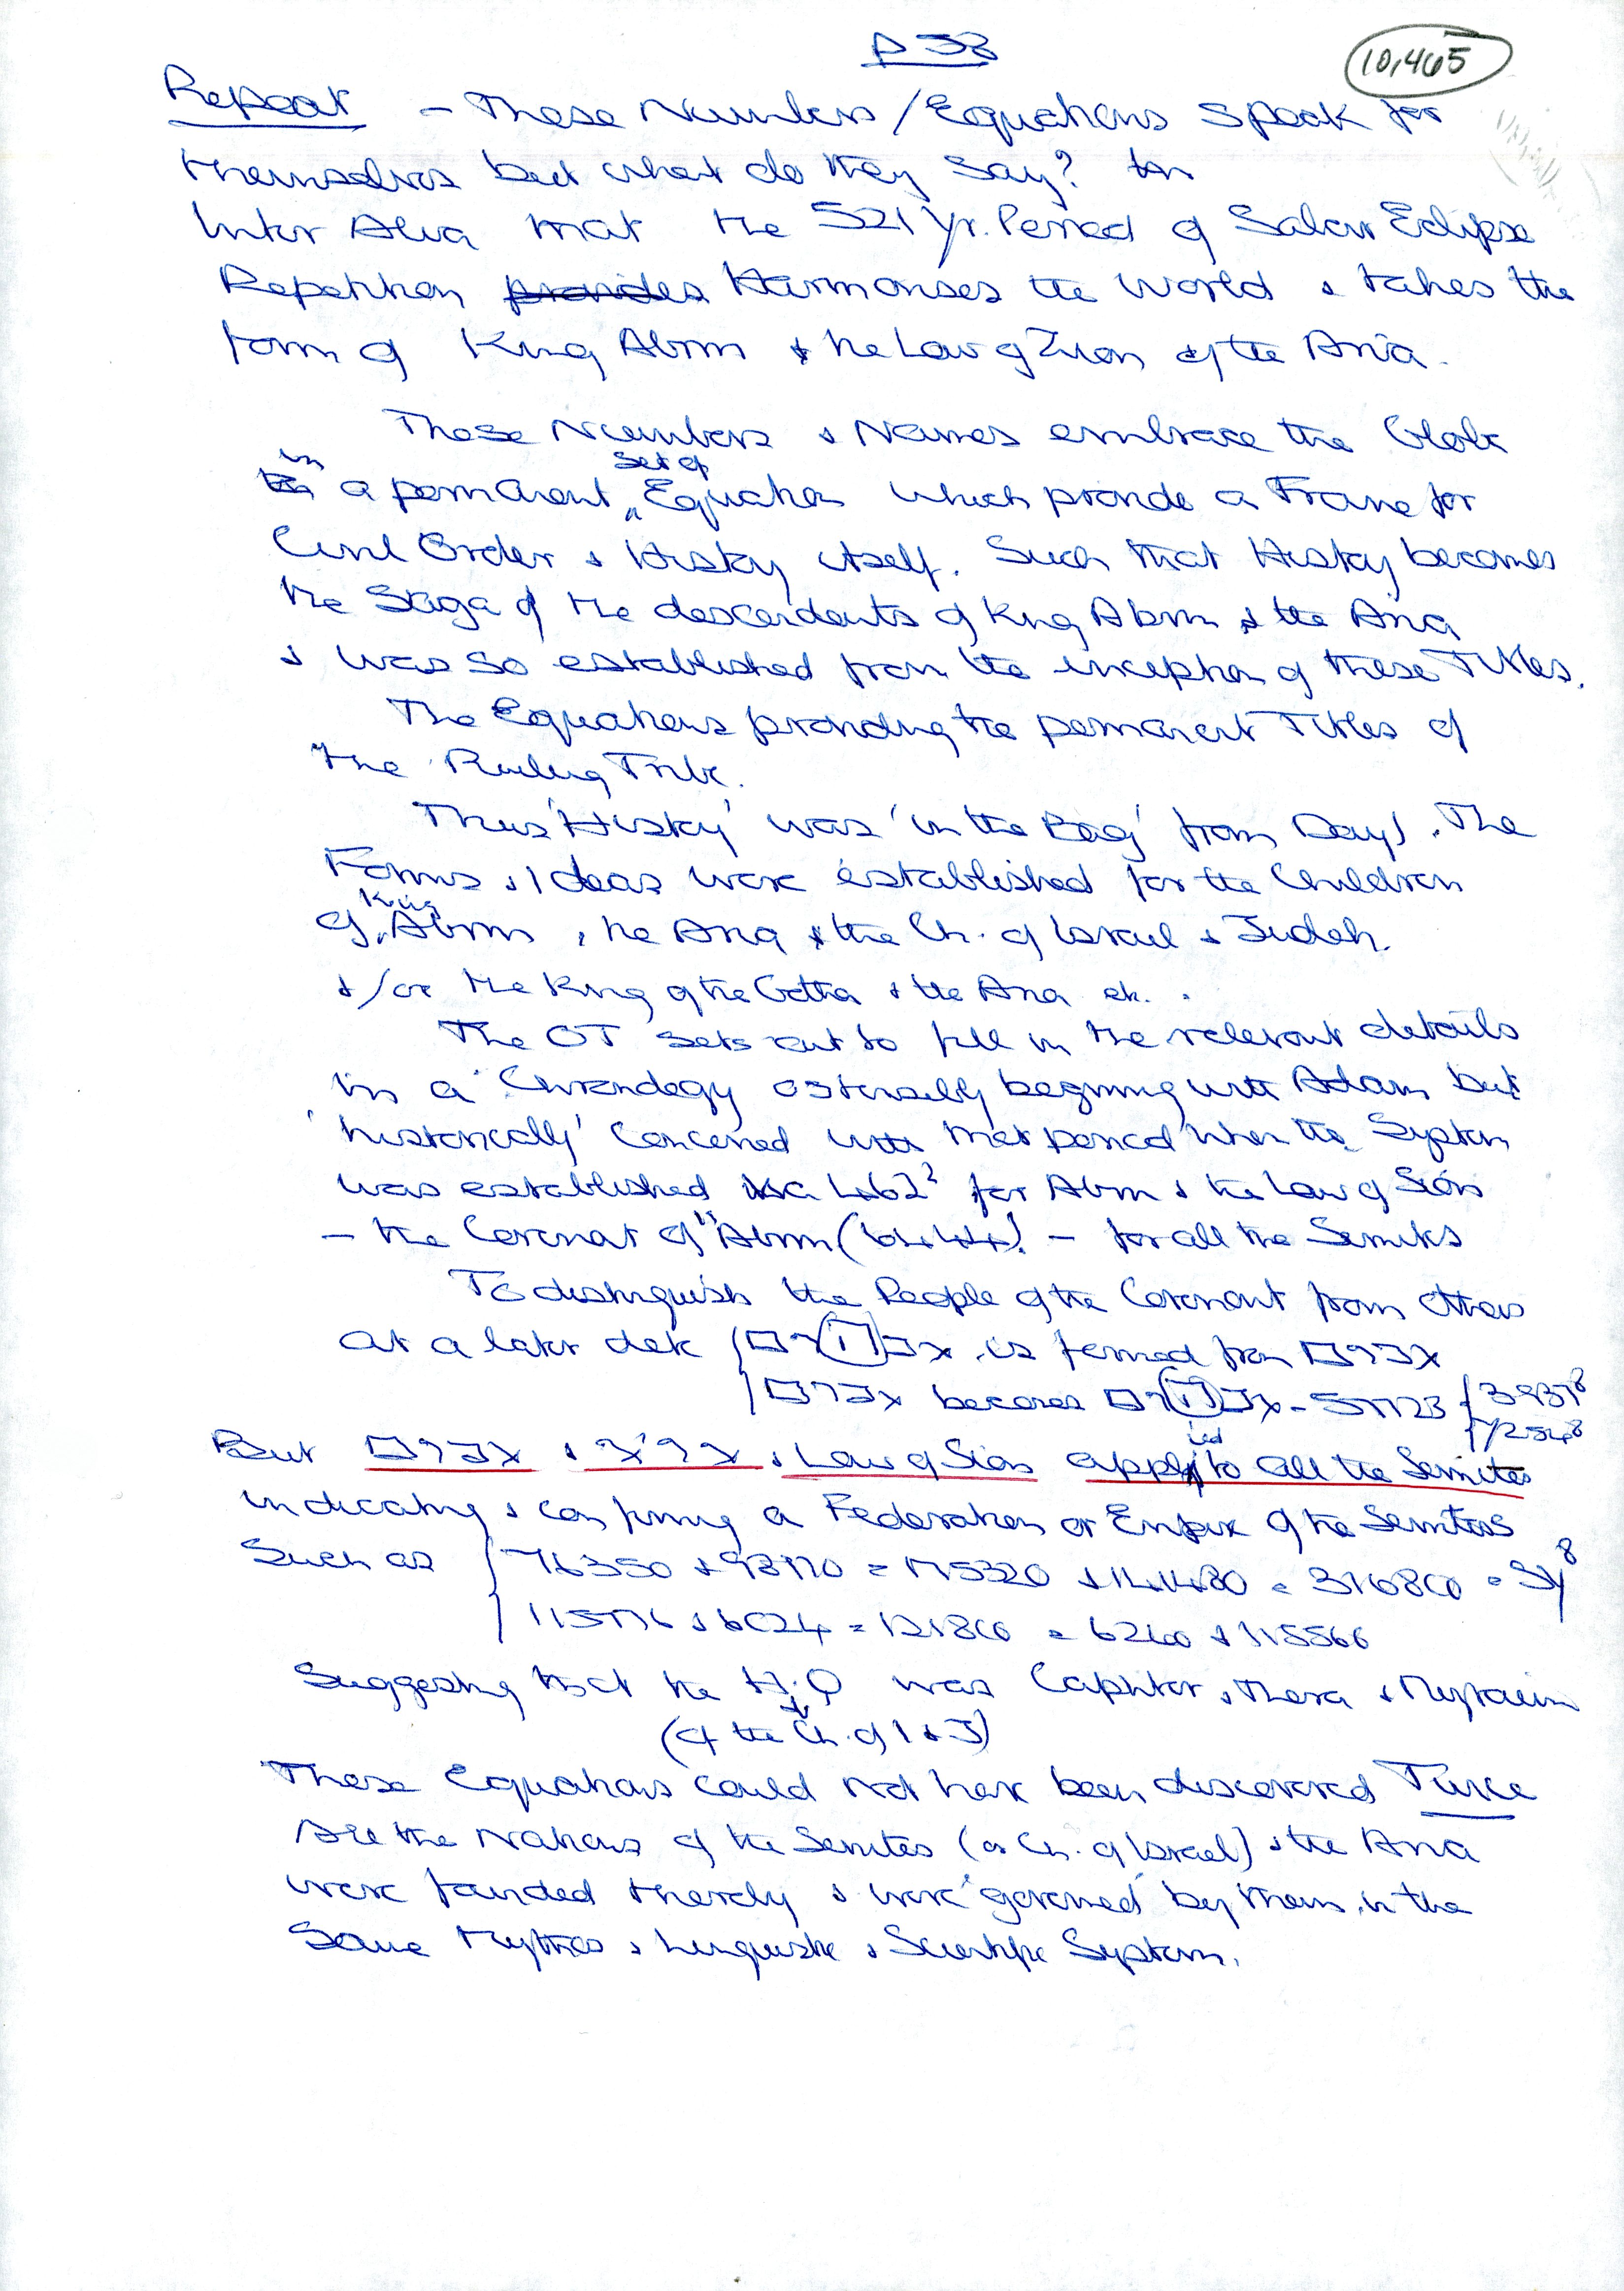 p 38
10,465
Repeat - These Numbers / Equations speak for
themselves but what do they say?
Inter Alia that the 521 Yr. Period of Solar Eclipse
Repetition provides Harmonises the World & takes the
form of King Abrm & the Law of Zion & the Aria.
These Numbers & Names embrace the Globe
in a permanent set of Equation which provide a Frame for
Civil Order & History itself. Such that History becomes
the Saga of the descendents of King Abrm & the Aria
& was so established from the inception of these Titles.
The Equations providing the permanent Titles of
the Ruling Tribe.
Thus 'History' was 'in the Bag' from Day 1. The
Forms & Ideas were established for the Children
of King Abrm, the Aria & the Ch. of Israel & Judah.
& / or the King of the Gotha & the Aria etc.
The OT sets out to fill in the relevant details
in a Chronology ostensibly beginning with Adam but
'historically' concerned with that period when the System
was established for Abrm & the Law of Sion
- the Covenant of "Abrm (6444)! - for all the Semites
To distinguish the People of the Covenant from others
at a later date אברהם is formed from אברם
אברם becomes אברהם - 57723 { 3937⁸
But אברם & & Law of Sion applied to all the Semites
indicating & confirming a Federation or Empire of the Semites
Such as 76350 + 98970 = 175320 + 141480 = 316800
115776 + 6024 = 121800 = 6240 + 115560
Suggesting that the H.Q was Caphtor, Thera & Mizraim
(of the Ch. of I & J)
These Equations could not have been discovered Twice
All the Nations of the Semites (or Ch. of Israel) & the Aria
were founded thereby & were 'governed' by them, in the
Same Mythos & Linguistic & Scientific System.